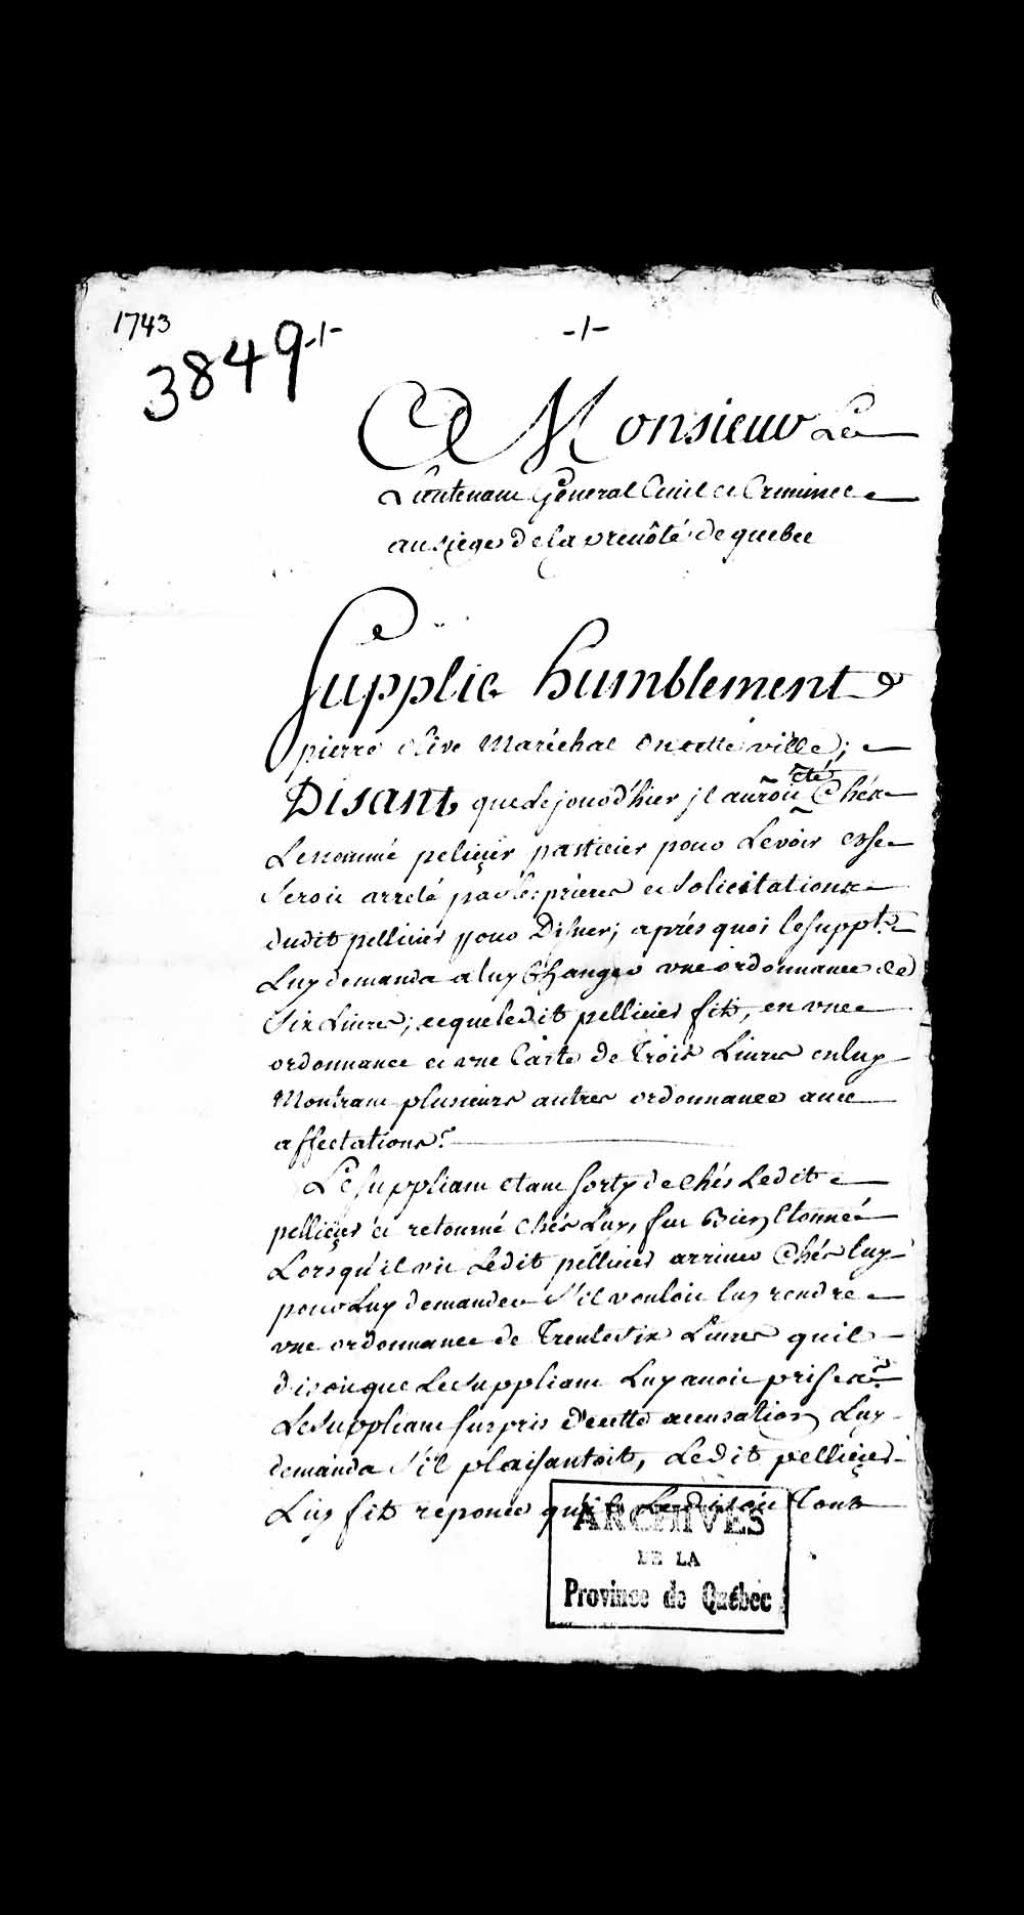 1743
3849-1-
-1-
A Monsieur Le
Lieutenant General Civil et Criminel
au siége de la prevôté de quebec
Supplie humblement
pierre olive Maréchal en cette ville;
Disant que le jour d'hier jl auroit été Chés
Le nommé peliçier pasticier pour Le voir et se
seroit arreté par les prieres et solicitations
dudit pellicier pour Disner; aprés quoi le suppt.
Luy demanda a luy Changer vne ordonnance de
six Livres; ce que ledit pellicier fit, en vne
ordonnance et vne Carte de Trois Livres en luy
Montrant plusieurs autres ordonnances avec
affectations.
Le suppliant etant sorty de Chés Ledit
pelliçier et retourné Chés Luy, fut Bien Etonné
Lorsqu'il vit Ledit pellicier arriver Chés luy
pour Luy demander s'il vouloit luy rendre
vne ordonnance de Trente six Livres quil
disoit que Le suppliant Luy avoit prise.
Le suppliant surpris d'cette accusation Luy
demanda s'il plaisantoit, Ledit pelliçier
Luy fit reponce qu'il Le disoit Tout
ARCHIVES
DE LA
Province de Québec